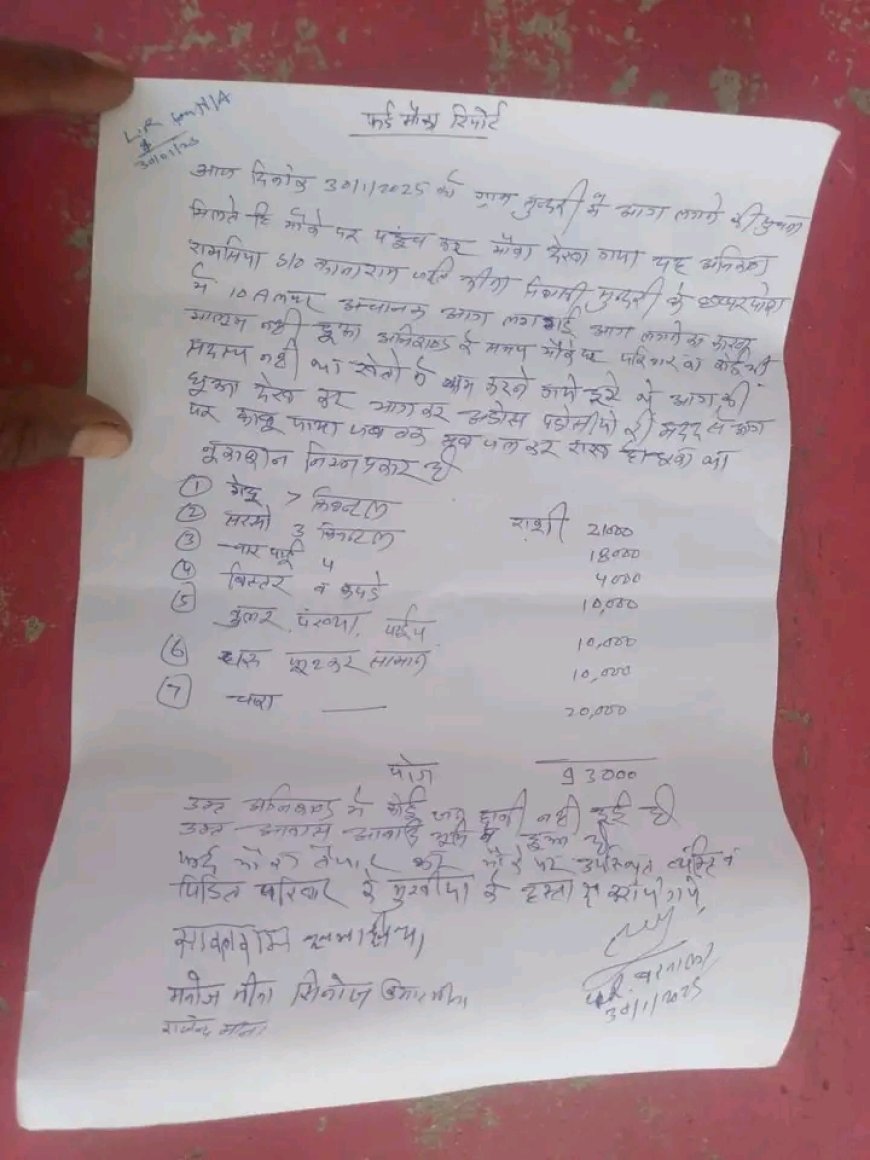 L.R
30/01/25
फर्द मौका रिपोर्ट
आज दिनांक 30/1/2025 को ग्राम मुन्दरी में आग लगने की सुचना
मिलते हि मौके पर पहुंच कर मौका देखा गया यह अग्निकाण्ड
रामसिया S/O कानाराम जाति मीना निवासी मुन्दरी के छप्परपोश
में 10 AM पर अचानक आग लग गई आग लगने का कारण
मालूम नही हुआ अग्निकाण्ड के समय मौके पर परिवार का कोई भी
सदस्य नही था खेतो में काम करने गये हुये थे आग की
धुआ देख कर भागकर अडोस पडोसीयो की मदद से आग
पर काबू पाया जब तक सब जल कर राख हो चुका था
नुकशान निम्न प्रकार है
① गेहू 7 क्विन्टल राशी 21000
② सरसो 3 क्विन्टल 18000
③ चार पाई 4 4000
④ बिस्तर व कपडे 10,000
⑤ कुलर, पंखा, पाईप 10,000
⑥ फूटकर सामान 10,000
⑦ चारा — 20,000
योग 93000
उक्त अग्निकाण्ड में कोई जन हानी नही हुई है
उक्त आवास आबादी भूमि में हुआ है
फर्द मौका तैयार कर मौके पर उपस्थित व्यक्ति व
पिडित परिवार के मुखीया के हस्ताक्षर कराये गये
मनोज मीना
राजेन्द्र मीना
30/1/2025